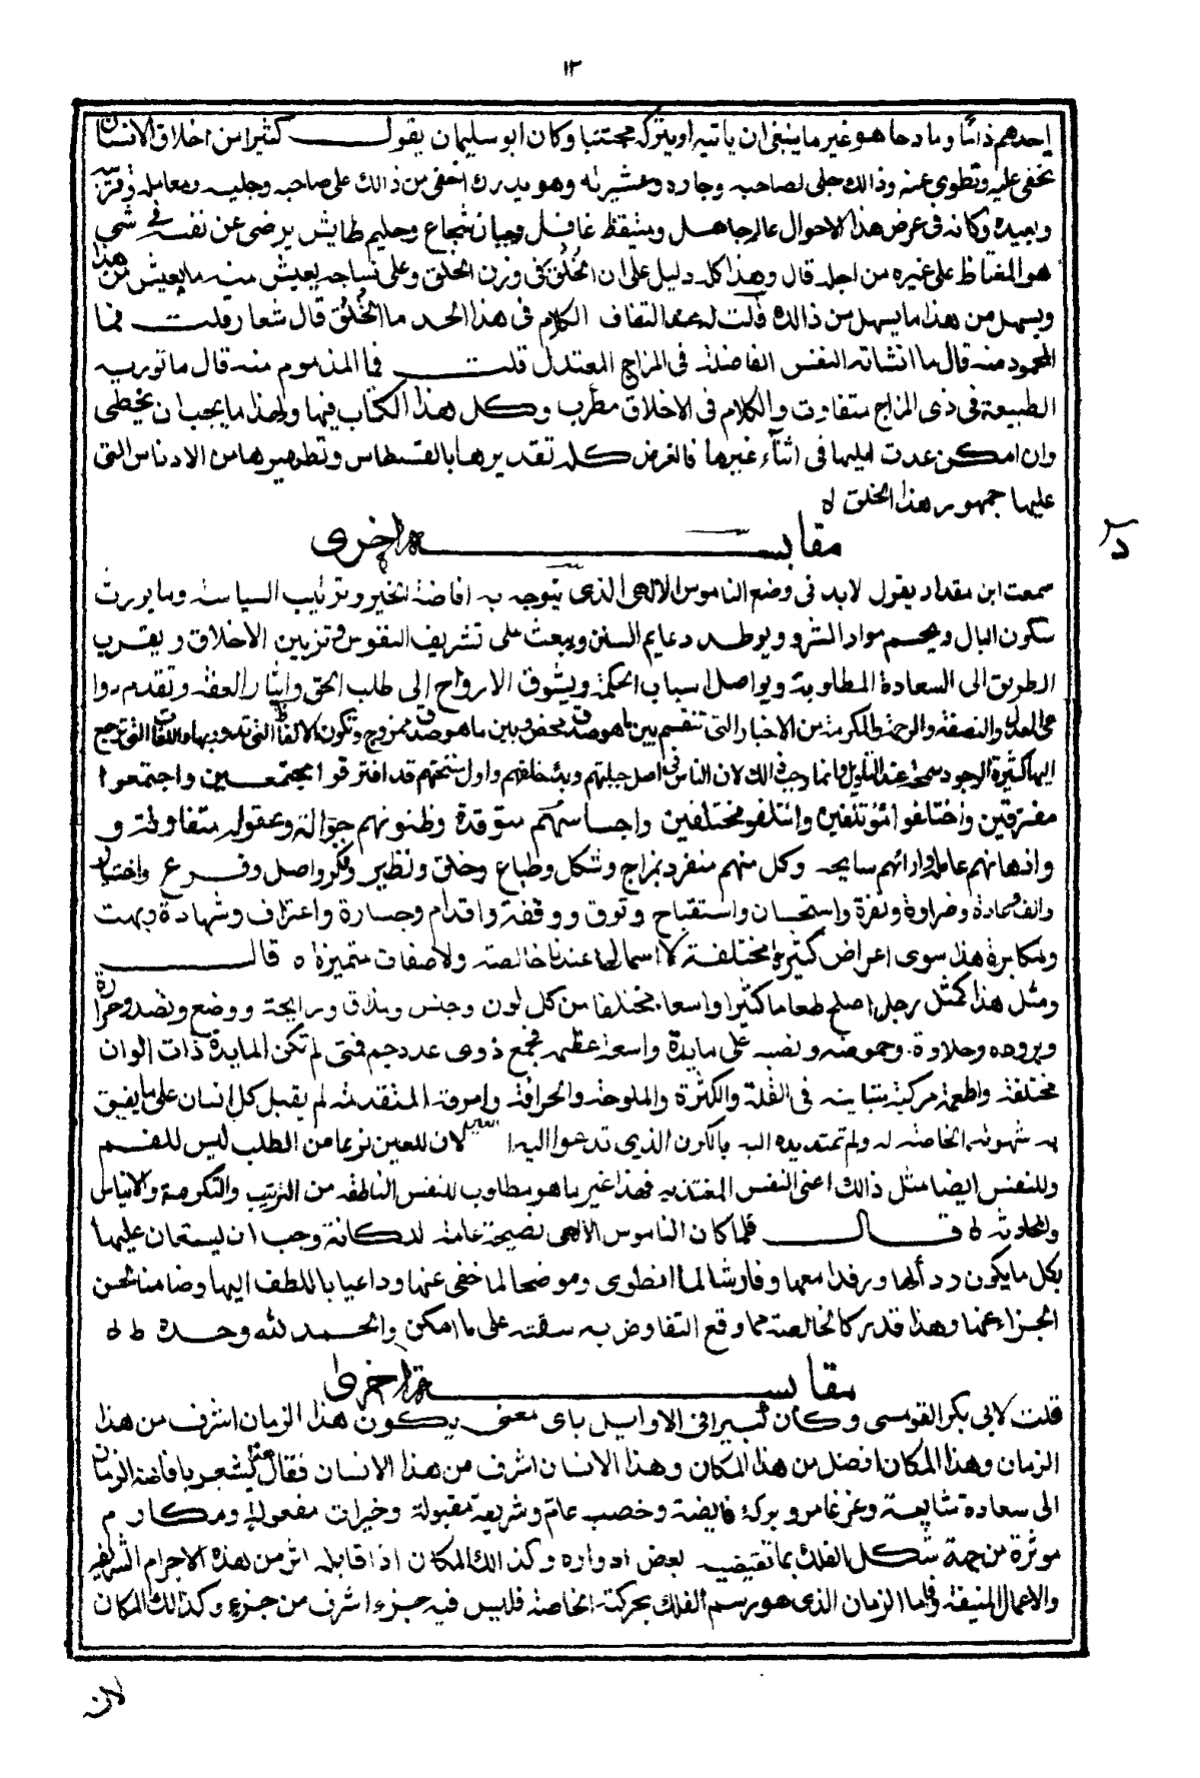 ١٢
احدهم ذاتا وما دحا هو غير ما ينبغى ان ياتيه او يتركه مجتنبا وكان ابو سليمان يقول كثيرا من اخلاق الانسان
تخفى عليه وتطوى عنه وذالك جلى لصاحبه وجاره وعشيرته وهو يدرك اخفى من ذالك على صاحبه وجليسه ومعامله وقريبه
وبعيده وكانه فى عرض هذا الاحوال عالم جاهل ومتيقظ غافل وجبان شجاع وحليم طايش يرضى عن نفسه فى شى
هو المغتاظ على غيره من اجله قال وهذا كله دليل على ان الخلق فى وزن الخلق وعلى نساجه يعيش منه ما يعيش من هذا
ويسهل من هذا ما يسهل من ذالك قلت له عند التفاف الكلام فى هذا الحد ما الخلق قال شعار قلت فما
المحمود منه قال ما انشاته النفس الفاضلة فى المزاج المعتدل قلت فما المذموم منه قال ما توريه
الطبيعة فى ذى المزاج متفاوت والكلام فى الاخلاق مطرب وكل هذا الكتاب فيها ولهذا ما يجب ان يخطى
وان امكن عدت اليها فى اثنآء غيرها فالغرض كله تقديرها بالقسطاس وتطهيرها من الادناس التى
عليها جمهور هذا الخلق
مقابسة اخرى
سمعت ابن مقداد يقول لابد فى وضع الناموس الالهى الذى يتوجه به افاضة الخير وترتيب السياسة وما يورث
سكون البال ويحسم مواد الشر ويوطد دعايم السنن ويبعث على تشريف النفوس وتزيين الاخلاق ويقرب
الطريق الى السعادة المطلوبة ويواصل اسباب الحكمة ويشوق الارواح الى طلب الحق وايثار العفة وتقدم روا
عى العدل والنصفة والرحمة والمكرمة من الاخبار التى تنقسم بين ما هو صدق محض وبين ما هو صدق ممزوج وتكون الالفاظ التى تدور بها واللغات التى ترجع
اليها كثيرة الوجود سمحة عند التاويل وانما وجب ذالك لان الناس فى اصل جبلتهم وبدء خلقهم واول سنتهم قد افترقوا مجتمعين واجتمعوا
مفترقين واختلفوا مؤتلفين وائتلفو مختلفين واحساسهم متوقدة وظنونهم جوالة وعقولهم متفاوتة و
واذهانهم عاملة وارائهم سايحه وكل منهم منفرد بمزاج وشكل وطباع وخلق ونظير وفكر واصل وفرع واختيار
والف وعادة وضراوة ونفرة واستحسان واستقباح وتوق ووقفة واقدام وجسارة واعتراف وشهادة وبهت
ومكابرة هذا سوى اعراض كثيرة مختلفة لا اسما لها عندنا خالصة ولا صفات متميزة ه قال
ومثل هذا كمثل رجل اصلح طعاما كثيرا واسعا مختلفا من كل لون وجنس ومذاق ورايحة ووضع ونضد وحرارة
وبروده وحلاوة وحموضه ونصبه على مايدة واسعة عظيمه فجمع ذوى عدد جم فمتى لم تكن المايدة ذات الوان
مختلفة واطعمة مركبة متباينه فى القلة والكثرة والملوحة والحرافة وامرفة المنقدمة لم يقبل كل انسان على ما يفيق
به شهوته الخاصة له ولم تمتد يده اليه بالكون الذى تدعوا اليه العين لان للعين نوعا من الطلب ليس للفم
وللنفس ايضا مثل ذالك اعنى النفس المغتذيه فهذا غير ما هو مطلوب للنفس الناطقة من الترتيب والتكرمة والايناس
والمحادثة قال فلما كان الناموس الالهى نصيحة عامة للكافة وجب ان يستعان عليها
بكل ما يكون ردءا لها ورفدا معها وفارشا لما انطوى وموضحا لما خفى عنها وداعيا باللطف اليها وضامنا لحسن
الجزاء عنها وهذا قدر كالخالصة مما وقع التفاوض به سقته على ما امكن والحمد لله وحده
مقابسة اخرى
قلت لابى بكر القومسى وكان كبيرا فى الاوايل باى معنى يكون هذا الزمان اشرف من هذا
الزمان وهذا المكان افضل من هذا المكان وهذا الانسان اشرف من هذا الانسان فقال هذا يشعر بافاضة الزمان
الى سعادة شايعة وعز غامر وبركة فايضة وخصب عام وشريعة مقبولة وخيرات مفعولة ومكارم
موثرة من جهة شكل الفلك بما تقتضيه بعض ادواره وكذالك المكان اذا قابله اثر من هذه الاجرام الشريفه
والاعمال المنيفة فاما الزمان الذى هو رسم الفلك بحركته الخاصة فليس فيه جزء اشرف من جزء وكذالك المكان
لان